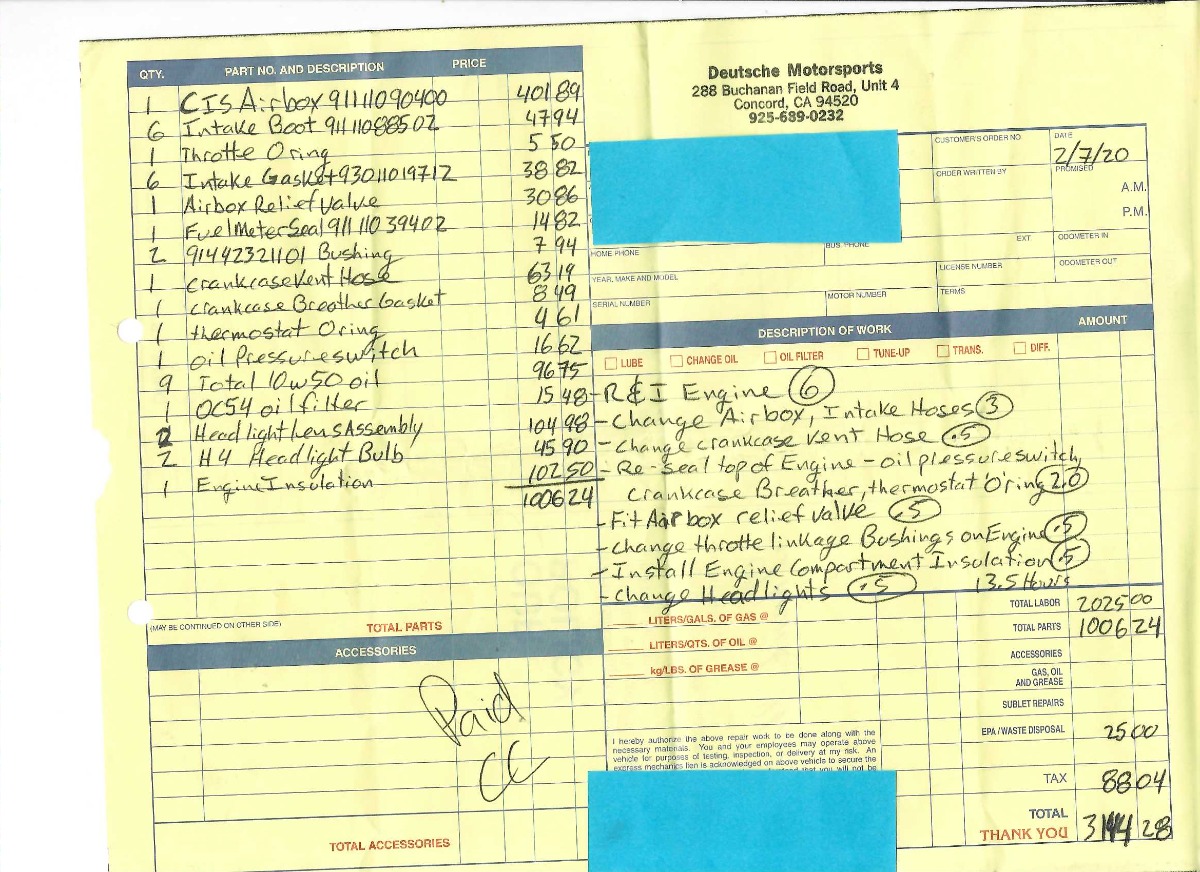 QTY. PART NO. AND DESCRIPTION PRICE
1 CIS Airbox 91111090400 401 89
6 Intake Boot 91111088502 47 94
1 Throtte Oring 5 50
6 Intake Gasket 93011019712 38 82
1 Airbox Relief Valve 30 86
1 Fuel Meter Seal 91111039402 14 82
2 91442321101 Bushing 7 94
1 crankcase Vent Hose 63 19
1 crankcase Breather Gasket 8 49
1 thermostat Oring 4 61
1 oil Pressure switch 16 62
9 Total 10w50 oil 96 75
1 OC54 oil filter 15 48
2 Headlight Lens Assembly 104 98
2 H4 Headlight Bulb 45 90
1 Engine Insulation 102 50
1006 24
(MAY BE CONTINUED ON OTHER SIDE) TOTAL PARTS
ACCESSORIES
Paid
CC
TOTAL ACCESSORIES
Deutsche Motorsports
288 Buchanan Field Road, Unit 4
Concord, CA 94520
925-689-0232
CUSTOMER'S ORDER NO. DATE
2/7/20
ORDER WRITTEN BY PROMISED
A.M.
P.M.
HOME PHONE BUS. PHONE EXT ODOMETER IN
YEAR, MAKE AND MODEL LICENSE NUMBER ODOMETER OUT
SERIAL NUMBER MOTOR NUMBER TERMS
DESCRIPTION OF WORK AMOUNT
LUBE CHANGE OIL OIL FILTER TUNE-UP TRANS. DIFF.
- R&I Engine 6
- Change Airbox, Intake Hoses 3
- Change crankcase Vent Hose .5
- Re-seal top of Engine - oil pressure switch,
crankcase Breather, thermostat O'ring 2.0
- Fit Air box relief valve .5
- change throtte linkage Bushings on Engine .5
- Install Engine Compartment Insulation .5
- Change Headlights .5 13.5 Hours
LITERS/GALS. OF GAS @ TOTAL LABOR 2025 00
LITERS/QTS. OF OIL @ TOTAL PARTS 1006 24
kg/LBS. OF GREASE @ ACCESSORIES
GAS, OIL
AND GREASE
SUBLET REPAIRS
EPA / WASTE DISPOSAL 25 00
I hereby authorize the above repair work to be done along with the
necessary materials. You and your employees may operate above
vehicle for purposes of testing, inspection, or delivery at my risk. An
express mechanics lien is acknowledged on above vehicle to secure the
that you will not be
TAX 88 04
TOTAL
THANK YOU 3144 28